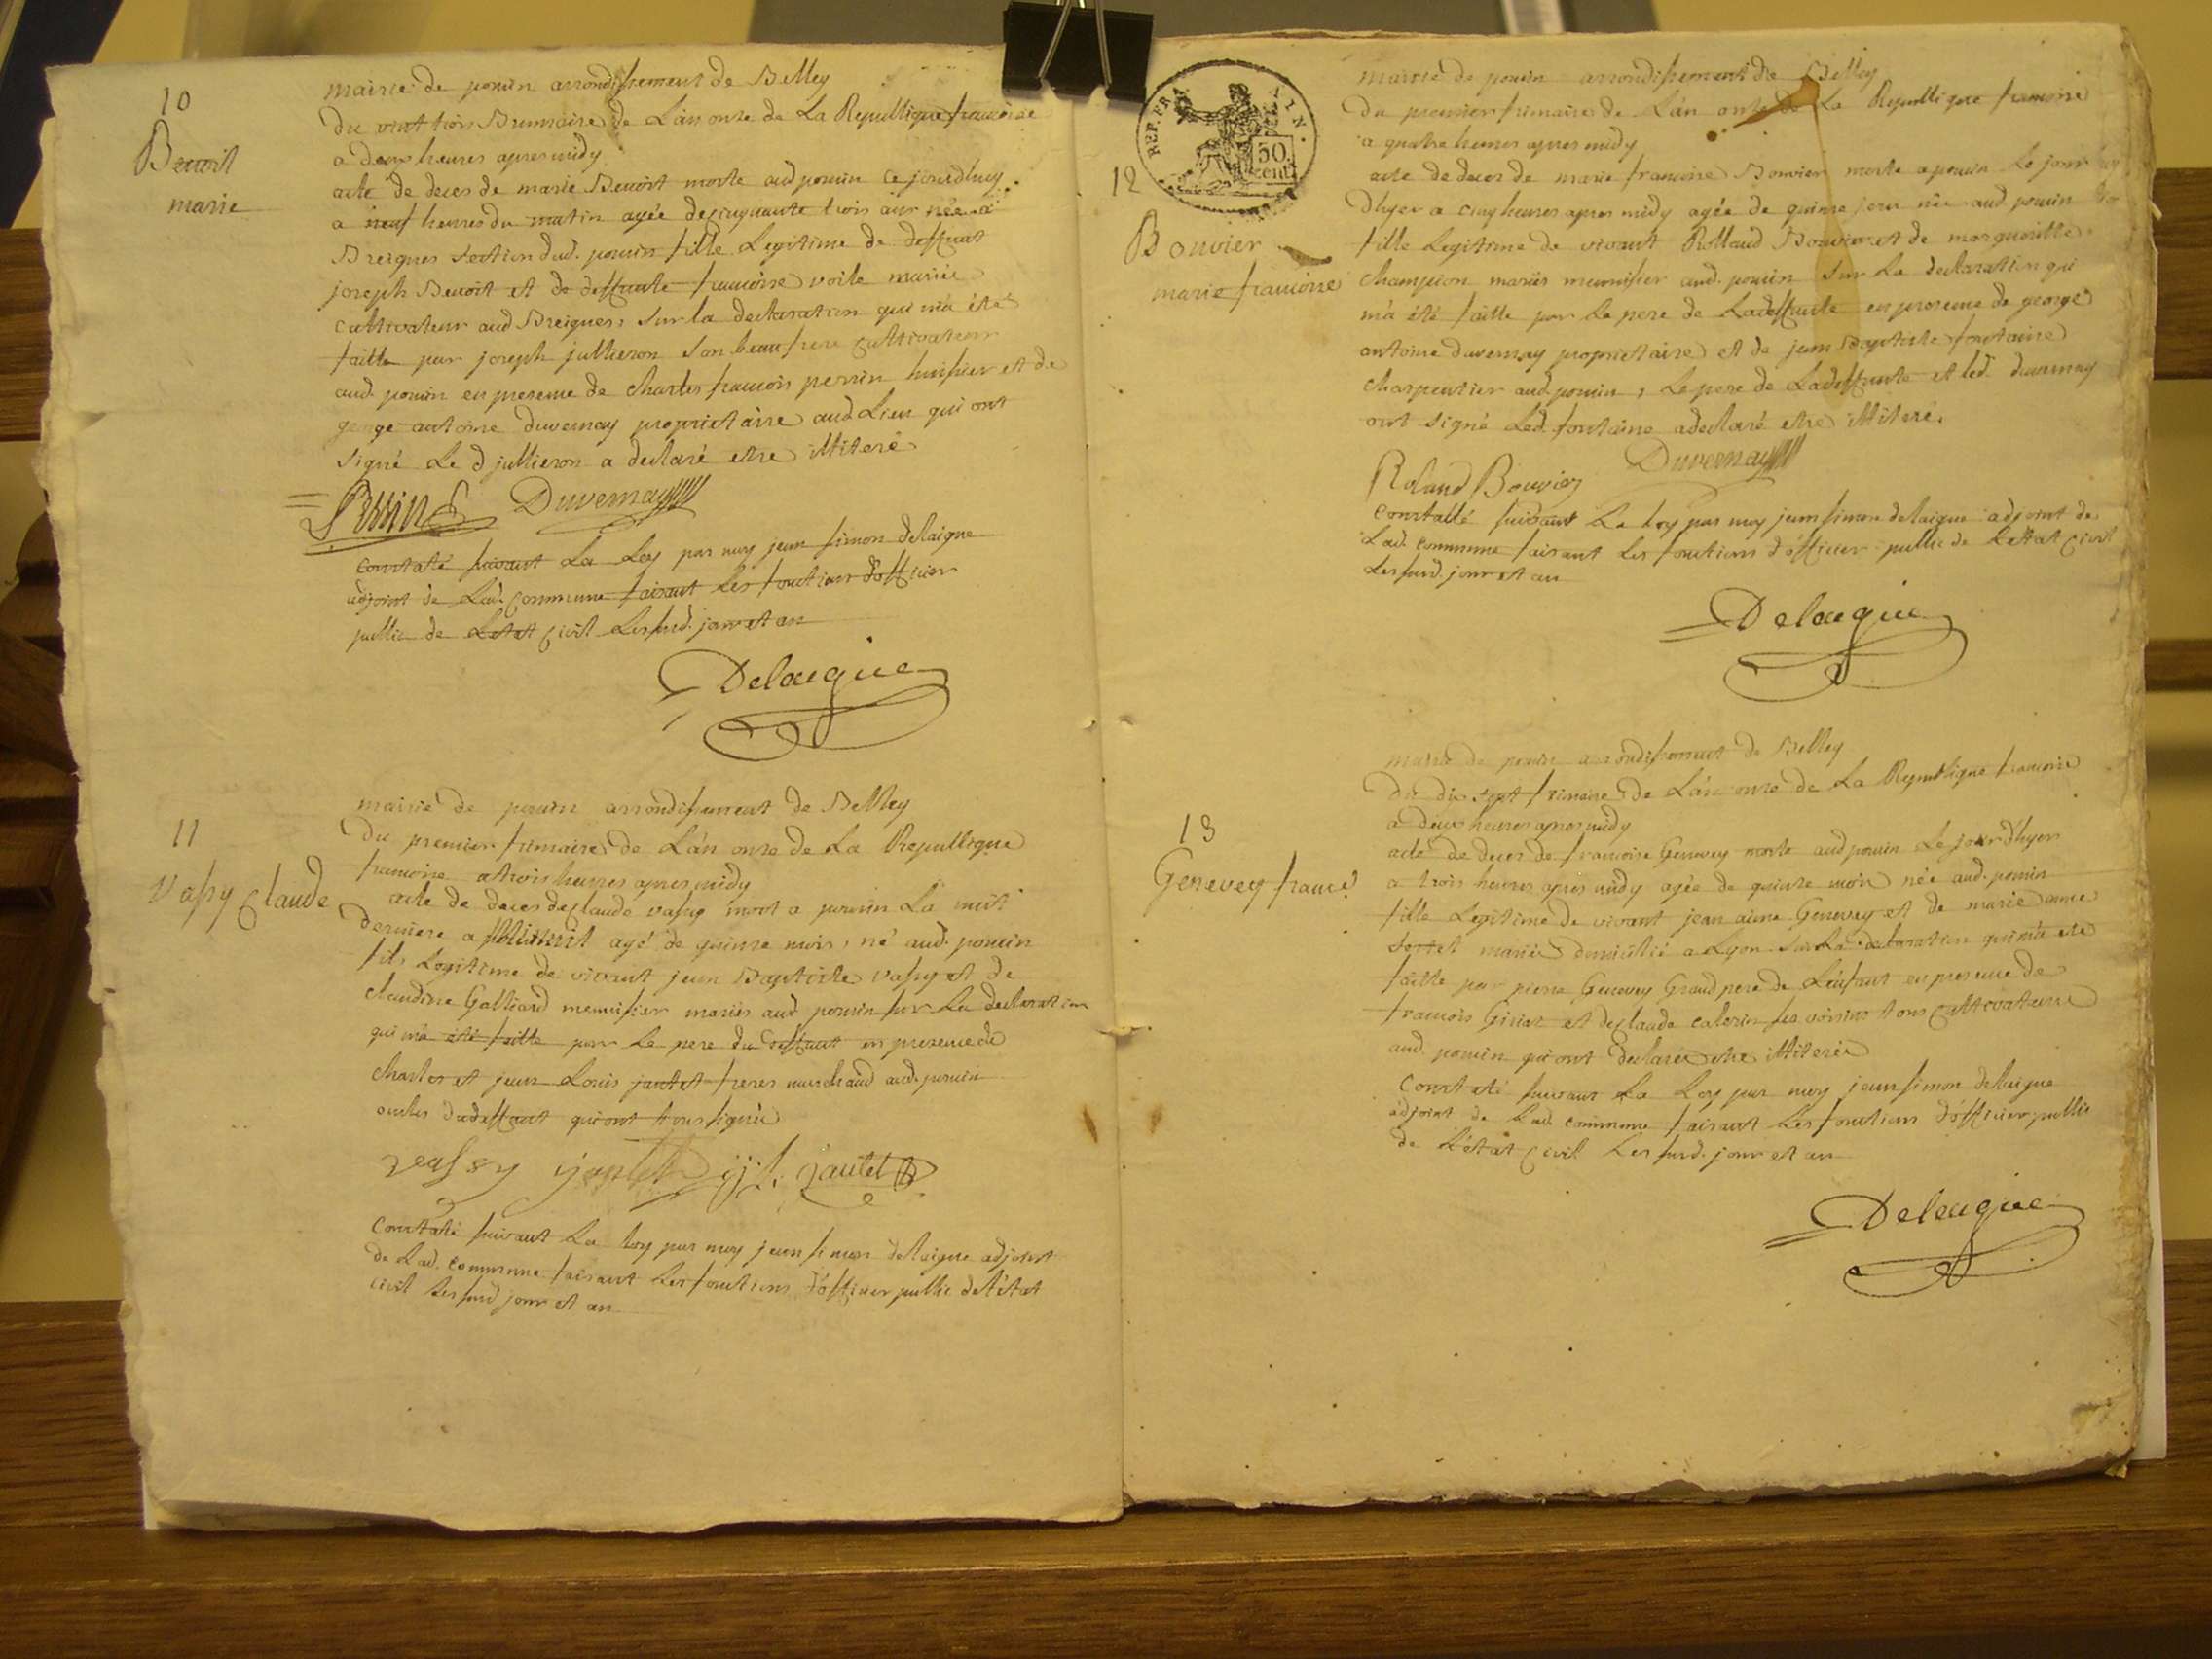 10
Benoit
marie
mairie de poncin arrondissement de Belley
du vint trois Brumaire de L'an onze de La Republique francoise
a deux heures apres midy
acte de deces de marie Benoit morte aud poncin ce jourdhuy
a neuf heures du matin agée de cinquante trois ans née a
Breignes section dud. poncin fille Legitime de deffunt
joseph Benoit et de deffunte francoise voile mariés
cultivateur aud Breignes, sur la declaration qui m'a été
faitte par joseph jullieron son beaufrere cultivateur
aud. poncin en presence de Charles francois perrin huissier et de
george antoine duvernay proprietaire aud Lieu qui ont
signé Le d jullieron a declaré etre illiteré
Perrin Duvernay
constaté suivant La Loy par moy jean simon delaigue
adjoint de Lad. commune faisant Les fonctions d'officier
public de L'etat civil Les sud. jour et an
Delaigue
11
Vassy Claude
mairie de poncin arrondissement de Belley
du premier frimaire de L'an onze de La Republique
francoise a trois heures apres midy
acte de deces de claude vassy mort a poncin La nuit
derniere a minuit agé de quinze mois, né aud. poncin
fils Legitime de vivant jean Baptiste vassy et de
claudine Galliard menuisier mariés aud poncin sur La declaration
qui m'a été faitte par Le pere du deffunt en presence de
charles et jean Louis jantet freres marchand aud. poncin
oncles dudeffunt qui ont tous signé
vassy jantet j j L. jautet
Constaté suivant La Loy par moy jean simon delaigue adjoint
de Lad. commune faisant Les fonctions d'officier public de l'état
civil Les sud jour et an
REP. FRA
AIN.
50
cent.
12
Bouvier
marie francoise
mairie de poncin arrondissement de Belley
du premier frimaire de L'an onze de La Republique francoise
a quatre heures apres midy
acte de deces de marie francoise Bouvier morte a poncin Le jour
dhyer a cinq heures apres midy agée de quinze jour née aud. poncin
fille Legitime de vivant Rolland Bouvier et de margueritte
Champion mariés menuisier aud. poncin sur La declaration qui
m'a été faitte par Le pere de Ladeffunte en presence de george
antoine duvernay proprietaire et de jean Baptiste fontaine
charpentier aud. poncin, Le pere de Ladeffunte et led. duvernay
ont signé Led. fontaine a declaré etre illiteré.
Roland Bouvier Duvernay
constatté suivant La Loy par moy jean simon delaigue adjoint de
Lad. commune faisant Les fonctions d'officier public de L'etat civil
Les sud. jour et an
Delaigue
13
Genevey france
mairie de poncin arrondissement de Belley
du dix sept frimaire de L'an onze de La Republique francoise
a deux heures apres midy
acte de deces de francoise Genevey morte aud poncin Le jour d'hyer
a trois heures apres midy agée de quinze mois née aud. poncin
fille Legitime de vivant jean aimé Genevey et de marie anne
mariés domicilié a Lyon sur La declaration qui m'a été
faitte par pierre Genevey Grand pere de L'enfant en presence de
francois Girier et de claude calerin ses voisins tous cultivateurs
aud. poncin qui ont declaré etre illiteré
Constaté suivant La Loy par moy jean simon delaigue
adjoint de Lad. commune faisant Les fonctions d'officier public
de L'état civil Les sud. jour et an
Delaigue